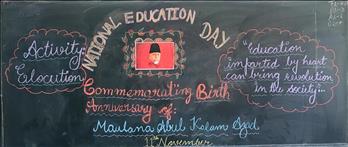 NATIONAL EDUCATION DAY
Activity:
Elocution
"Education
imparted by heart
can bring revolution
in the society"...
Commemorating Birth
Anniversary of:
Maulana Abul Kalam Azad
11th November